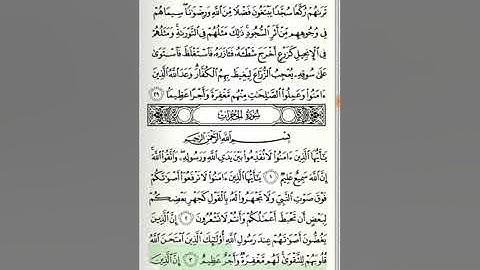 تَرَىٰهُمْ رُكَّعًا سُجَّدًا يَبْتَغُونَ فَضْلًا مِّنَ ٱللَّهِ وَرِضْوَٰنًا سِيمَاهُمْ
فِى وُجُوهِهِم مِّنْ أَثَرِ ٱلسُّجُودِ ذَٰلِكَ مَثَلُهُمْ فِى ٱلتَّوْرَىٰةِ وَمَثَلُهُمْ
فِى ٱلْإِنجِيلِ كَزَرْعٍ أَخْرَجَ شَطْـَٔهُۥ فَـَٔازَرَهُۥ فَٱسْتَغْلَظَ فَٱسْتَوَىٰ
عَلَىٰ سُوقِهِۦ يُعْجِبُ ٱلزُّرَّاعَ لِيَغِيظَ بِهِمُ ٱلْكُفَّارَ وَعَدَ ٱللَّهُ ٱلَّذِينَ
ءَامَنُوا۟ وَعَمِلُوا۟ ٱلصَّٰلِحَٰتِ مِنْهُم مَّغْفِرَةً وَأَجْرًا عَظِيمًۢا ٢٩
سُورَةُ الحُجُرَاتِ
بِسْمِ ٱللَّهِ ٱلرَّحْمَٰنِ ٱلرَّحِيمِ
يَٰٓأَيُّهَا ٱلَّذِينَ ءَامَنُوا۟ لَا تُقَدِّمُوا۟ بَيْنَ يَدَىِ ٱللَّهِ وَرَسُولِهِۦ وَٱتَّقُوا۟ ٱللَّهَ
إِنَّ ٱللَّهَ سَمِيعٌ عَلِيمٌ ١ يَٰٓأَيُّهَا ٱلَّذِينَ ءَامَنُوا۟ لَا تَرْفَعُوٓا۟ أَصْوَٰتَكُمْ
فَوْقَ صَوْتِ ٱلنَّبِىِّ وَلَا تَجْهَرُوا۟ لَهُۥ بِٱلْقَوْلِ كَجَهْرِ بَعْضِكُمْ
لِبَعْضٍ أَن تَحْبَطَ أَعْمَٰلُكُمْ وَأَنتُمْ لَا تَشْعُرُونَ ٢ إِنَّ ٱلَّذِينَ
يَغُضُّونَ أَصْوَٰتَهُمْ عِندَ رَسُولِ ٱللَّهِ أُو۟لَٰٓئِكَ ٱلَّذِينَ ٱمْتَحَنَ ٱللَّهُ
قُلُوبَهُمْ لِلتَّقْوَىٰ لَهُم مَّغْفِرَةٌ وَأَجْرٌ عَظِيمٌ ٣ إِنَّ ٱلَّذِينَ